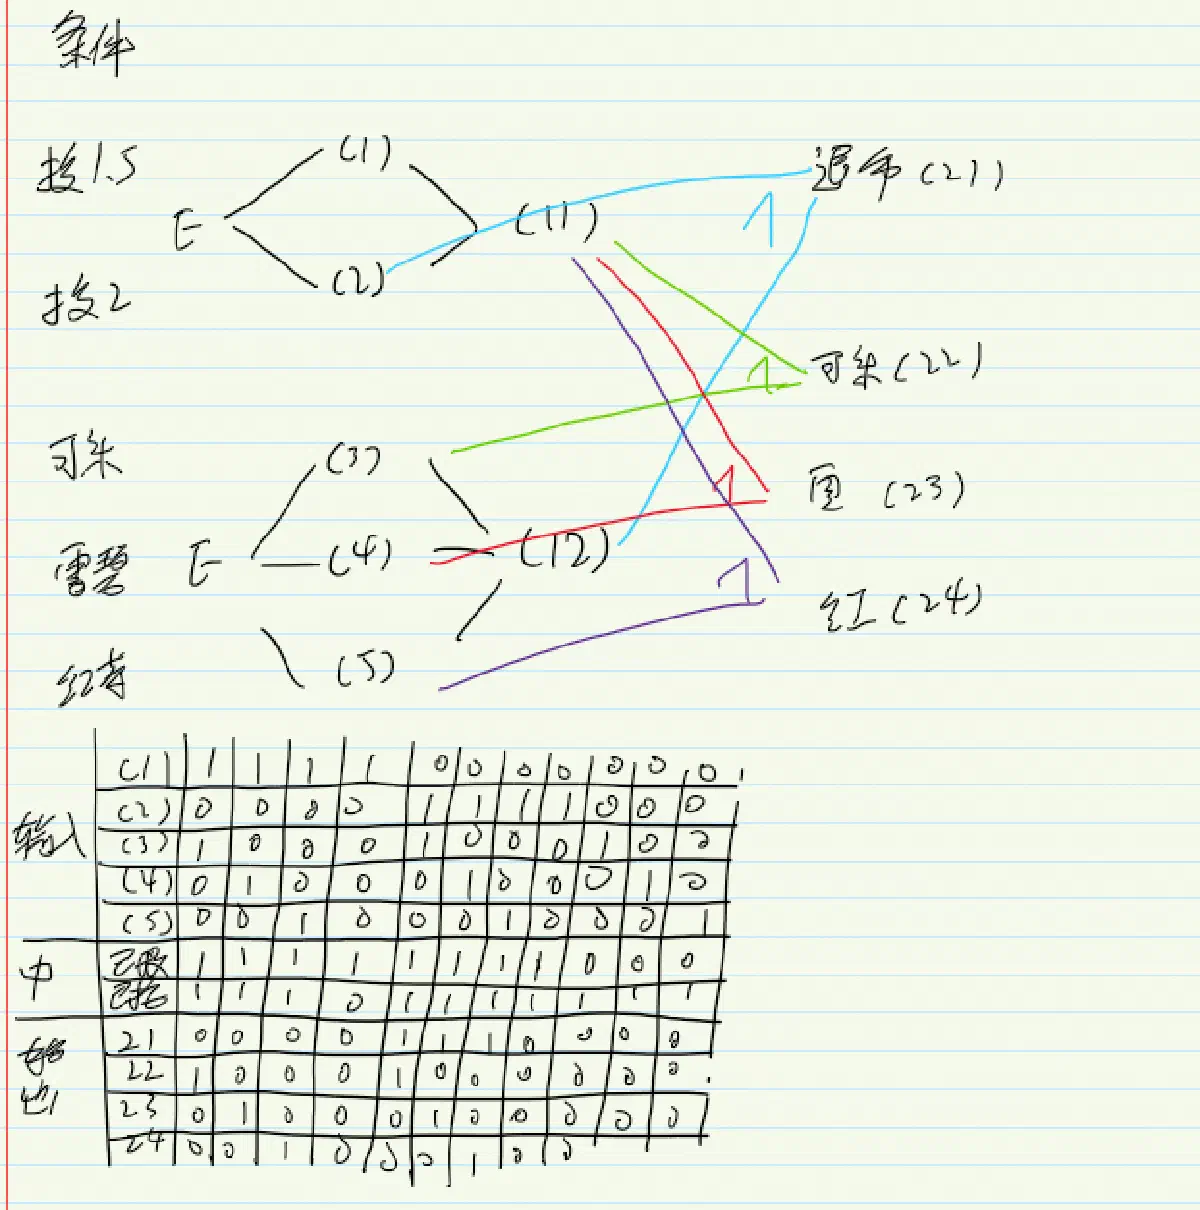 条件
投1.5 E (1) (11) 1 退币(21)
投2 (2)
可乐 (3) 1 可乐(22)
雪碧 E (4) (12) 1 (23)
红茶 (5) 1 红(24)
输入 (1) 1 1 1 1 0 0 0 0 0 0 0
(2) 0 0 0 0 1 1 1 1 0 0 0
(3) 1 0 0 0 1 0 0 0 1 0 0
(4) 0 1 0 0 0 1 0 0 0 1 0
(5) 0 0 1 0 0 0 1 0 0 0 1
中 已投 1 1 1 1 1 1 1 1 0 0 0
已按 1 1 1 0 1 1 1 1 1 1 1
输出 21 0 0 0 0 1 1 1 0 0 0 0
22 1 0 0 0 1 0 0 0 0 0 0
23 0 1 0 0 0 1 0 0 0 0 0
24 0 0 1 0 0 0 1 0 0